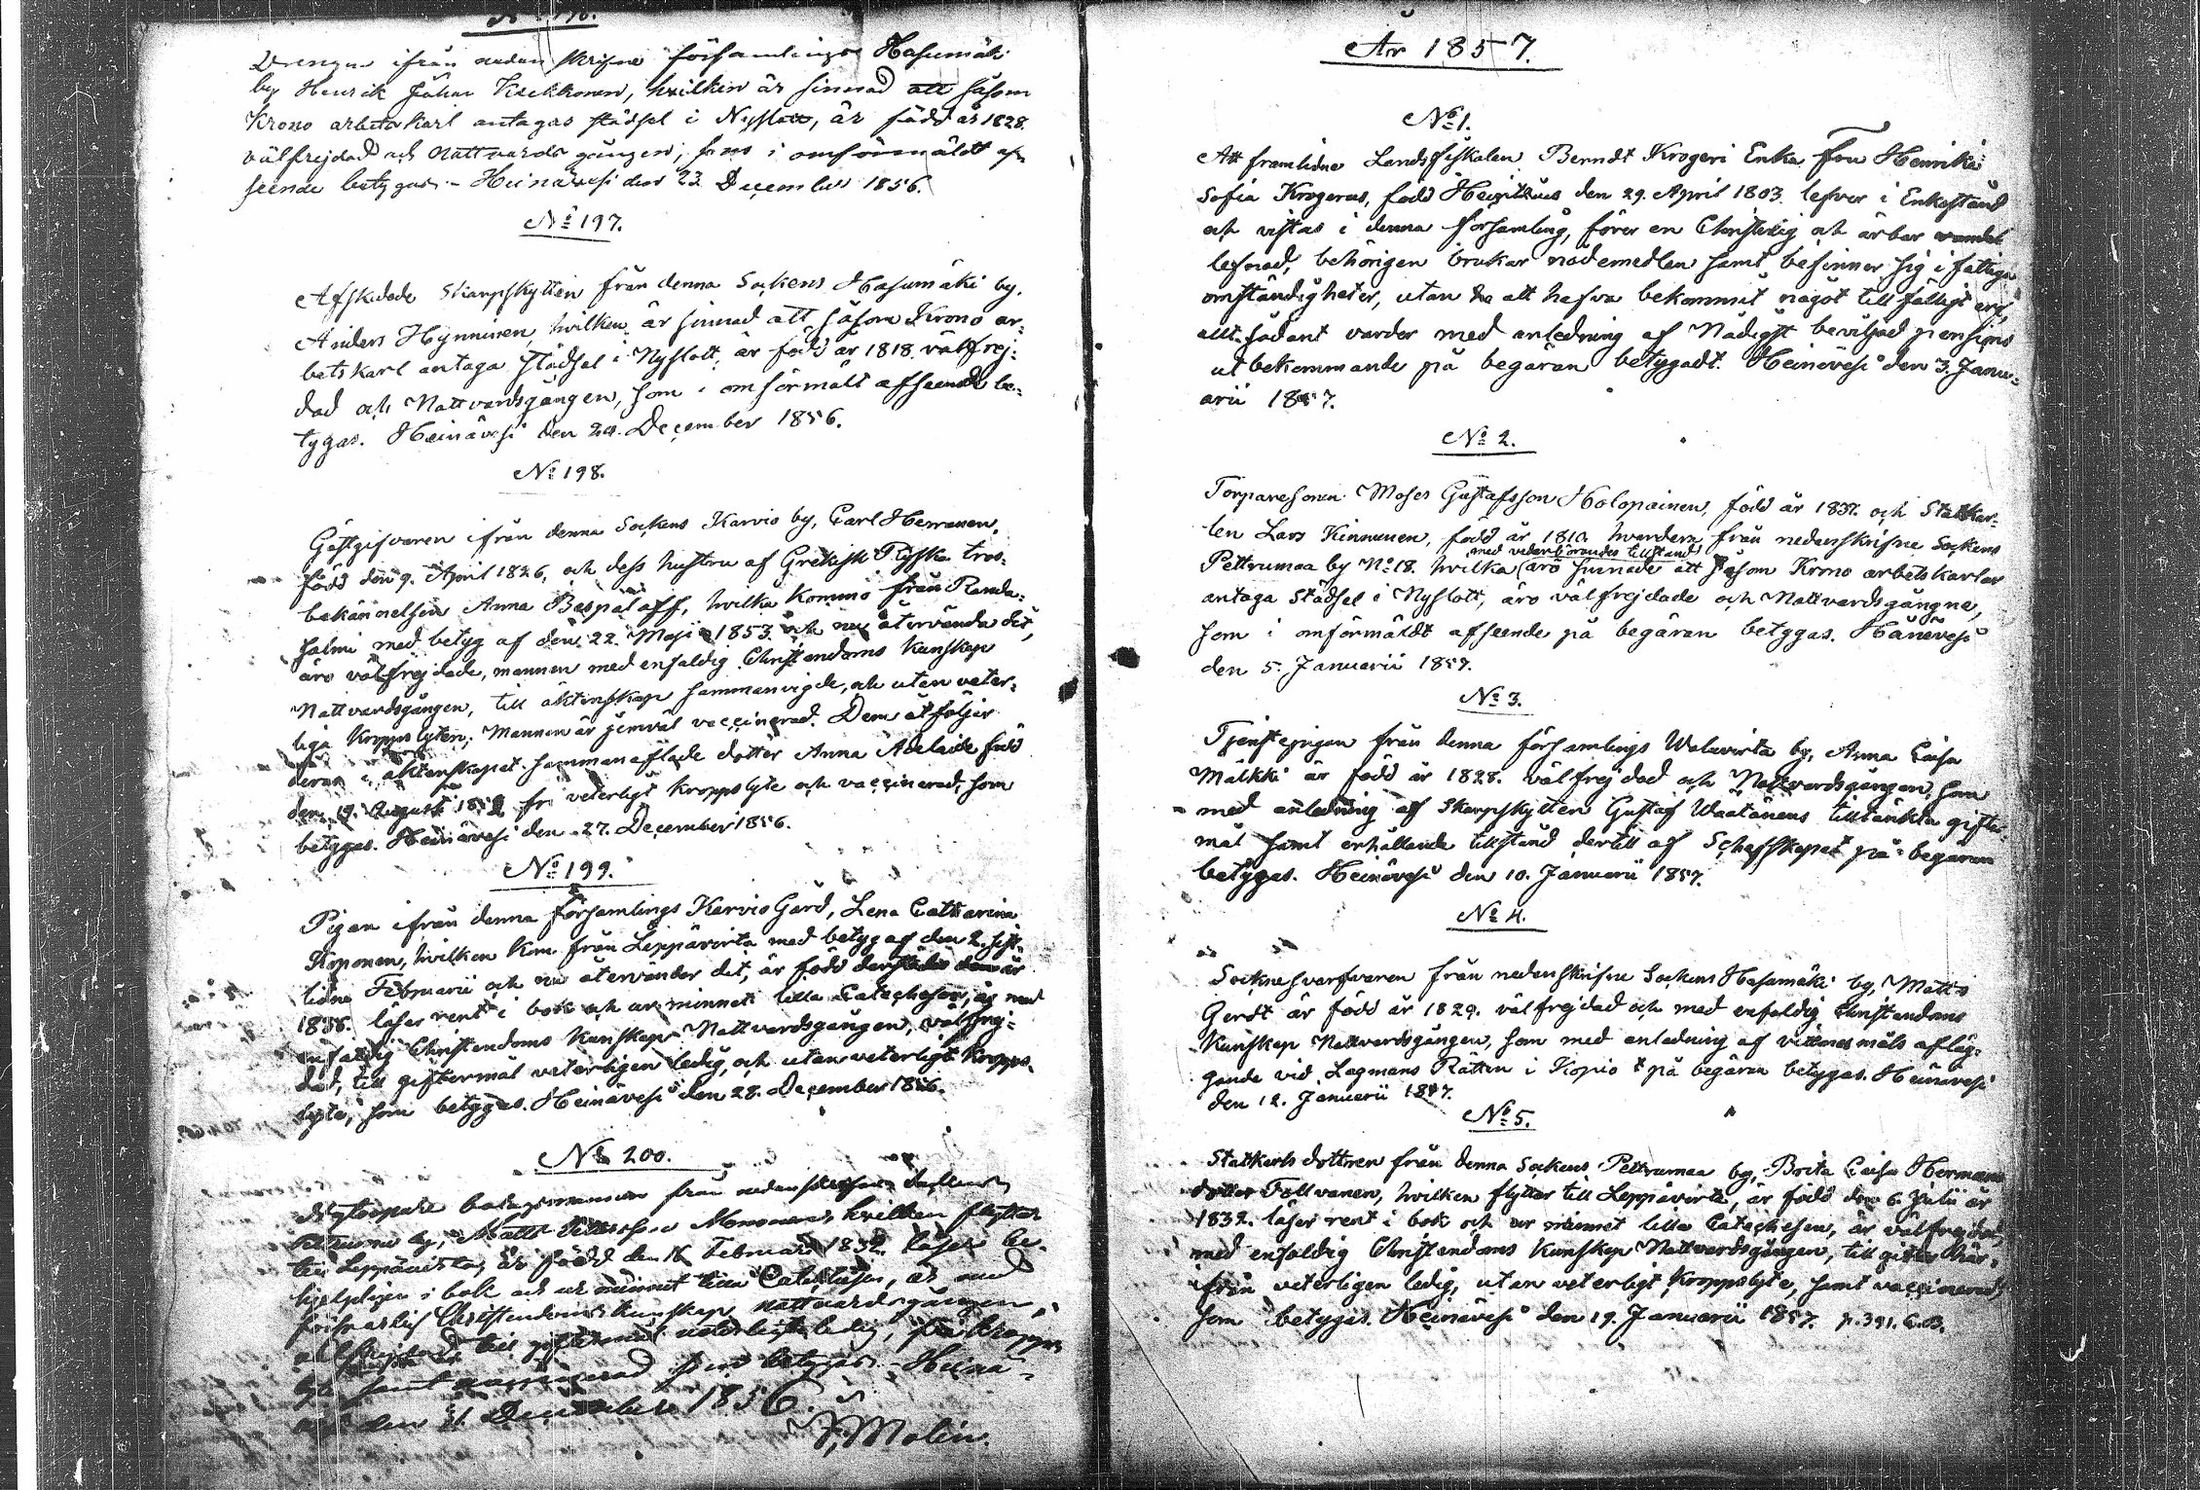 Nº 196.
Drengen ifrån nedanskrifne församlings Hasumäki
by Henrik Johan Kekkonen, hvilken är sinnad att såsom
Krono arbetskarl antagas städsel i Nyslott, är född år 1828.
välfrejdad och Nattvardsgången, som i omförmäldt af-
seende betygas. Heinävesi den 23. December 1856.
Nº 197.
Afskedade Skarpskytten från denna Sockens Hasumäki by,
Anders Hynninen, hvilken är sinnad att såsom Krono ar-
betskarl antaga städsel i Nyslott, är född år 1818. välfrej-
dad och Nattvardsgången, som i omförmält afseende be-
tygas. Heinävesi den 24. December 1856.
Nº 198.
Gästgifvaren ifrån denna Sockens Karvio by, Carl Herranen,
född den 9. April 1826, och dess hustru af Grekisk Ryska tros-
bekännelsen Anna Bespaloff, hvilka kommo från Randa-
salmi med betyg af den 22. Maji 1853. och nu återvända dit,
äro välfrejdade, mannen med enfaldig Christendoms kunskap
Nattvardsgången, till äktenskap sammanvigde, och utan veter-
liga kroppslyten; Mannen är jemväl vaccinerad. Dem åtföljer
deras i äktenskapet sammanaflade dotter Anna Adelaide född
den 19. Augusti fri veterligt kroppslyte och vaccinerad, som
betygas. Heinävesi den 27. December 1856.
Nº 199.
Pigan ifrån denna församlings Karvio Gård, Lena Catharina
Koponen, hvilken kom från Leppävirta med betyg af den 2. sist-
lidne Februarii och nu återvänder dit, är född derstädes år
1835. läser rent i bok och ur minnet lilla Catechesen, är med
enfaldig Christendoms kunskap Nattvardsgången, välfrej-
dad, till giftermål veterligen ledig, och utan veterligt kropps-
lyte, som betygas. Heinävesi den 28. December 1856.
Nº 200.
från nedanskrifne
by, Matts Mononen, hvilken flyttar
till Leppävirta, är född den 16 Februari 1832. läser be-
hjelpligen i bok och ur minnet lilla Catechesen, är med
försvarlig Christendoms kunskap nattvardsgången,
välfrejdad till giftermål veterligt ledig, fri kropps-
lyte samt vaccinerad som betygas. Heinä-
vesi den 31. December 1856.
Molin.
År 1857.
Nº 1.
Att framlidne Landsfiskalen Berndt Krogeri Enka Fru Henrika
Sofia Krogerus, född den 29. April 1803. lefver i Enkestånd
och vistas i denna församling, förer en Christelig och ärbar vandel
lefnad, behörigen brukar nådemedlen samt befinner sig i fattiga
omständigheter, utan att hafva bekommit något tillfälligt arf,
allt sådant varder med anledning af Nådigst beviljad pensions
utbekommande på begäran betygadt. Heinävesi den 3. Janu-
arii 1857.
Nº 2.
Torparesonen Moses Gustafsson Holopainen, född år 1837. och Statkar-
len Lars Kinnunen, född år 1810. hvardera från nedanskrifne Sockens
med vederbörandes tillstånd
Pettrumaa by Nº 18. hvilka äro sinnade att såsom Krono arbetskarlar
antaga Städsel i Nyslott, äro välfrejdade och Nattvardsgångne,
som i omförmäldt afseende på begäran betygas. Hänevesi
den 5. Januarii 1857.
Nº 3.
Tjenstepigan från denna församlings Walavirta by, Anna Caisa
Mälkki är född år 1828. välfrejdad och Nattvardsgången, som
med anledning af Skarpskytten Gustaf Waatanens tilltänkta gifter-
mål samt erhållande tillstånd dertill af på begäran
betygas. Heinävesi den 10. Januarii 1857.
Nº 4.
Socknesvarfvaren från nedanskrifne Sockens Hasumäki by, Matts
Gerdt är född år 1829. välfrejdad och med enfaldig Christendoms
Kunskap Nattvardsgången, som med anledning af vittnesmåls afläg-
gande vid Lagmans Rätten i Kopio på begäran betygas. Heinävesi
den 12. Januarii 1857.
Nº 5.
Statkarls dottren från denna Sockens Pettrumaa by, Brita Caisa Hermans
dotter Tolvanen, hvilken flyttar till Leppävirta, är född den 6. Julii år
1832. läser rent i bok och ur minnet lilla Catechesen, är välfrejdad,
med enfaldig Christendoms Kunskap Nattvardsgången, till gifte här-
ifrån veterligen ledig, utan veterligt kroppslyte, samt vaccinerad,
som betygas. Heinävesi den 19. Januarii 1857. p. 391. C.B.